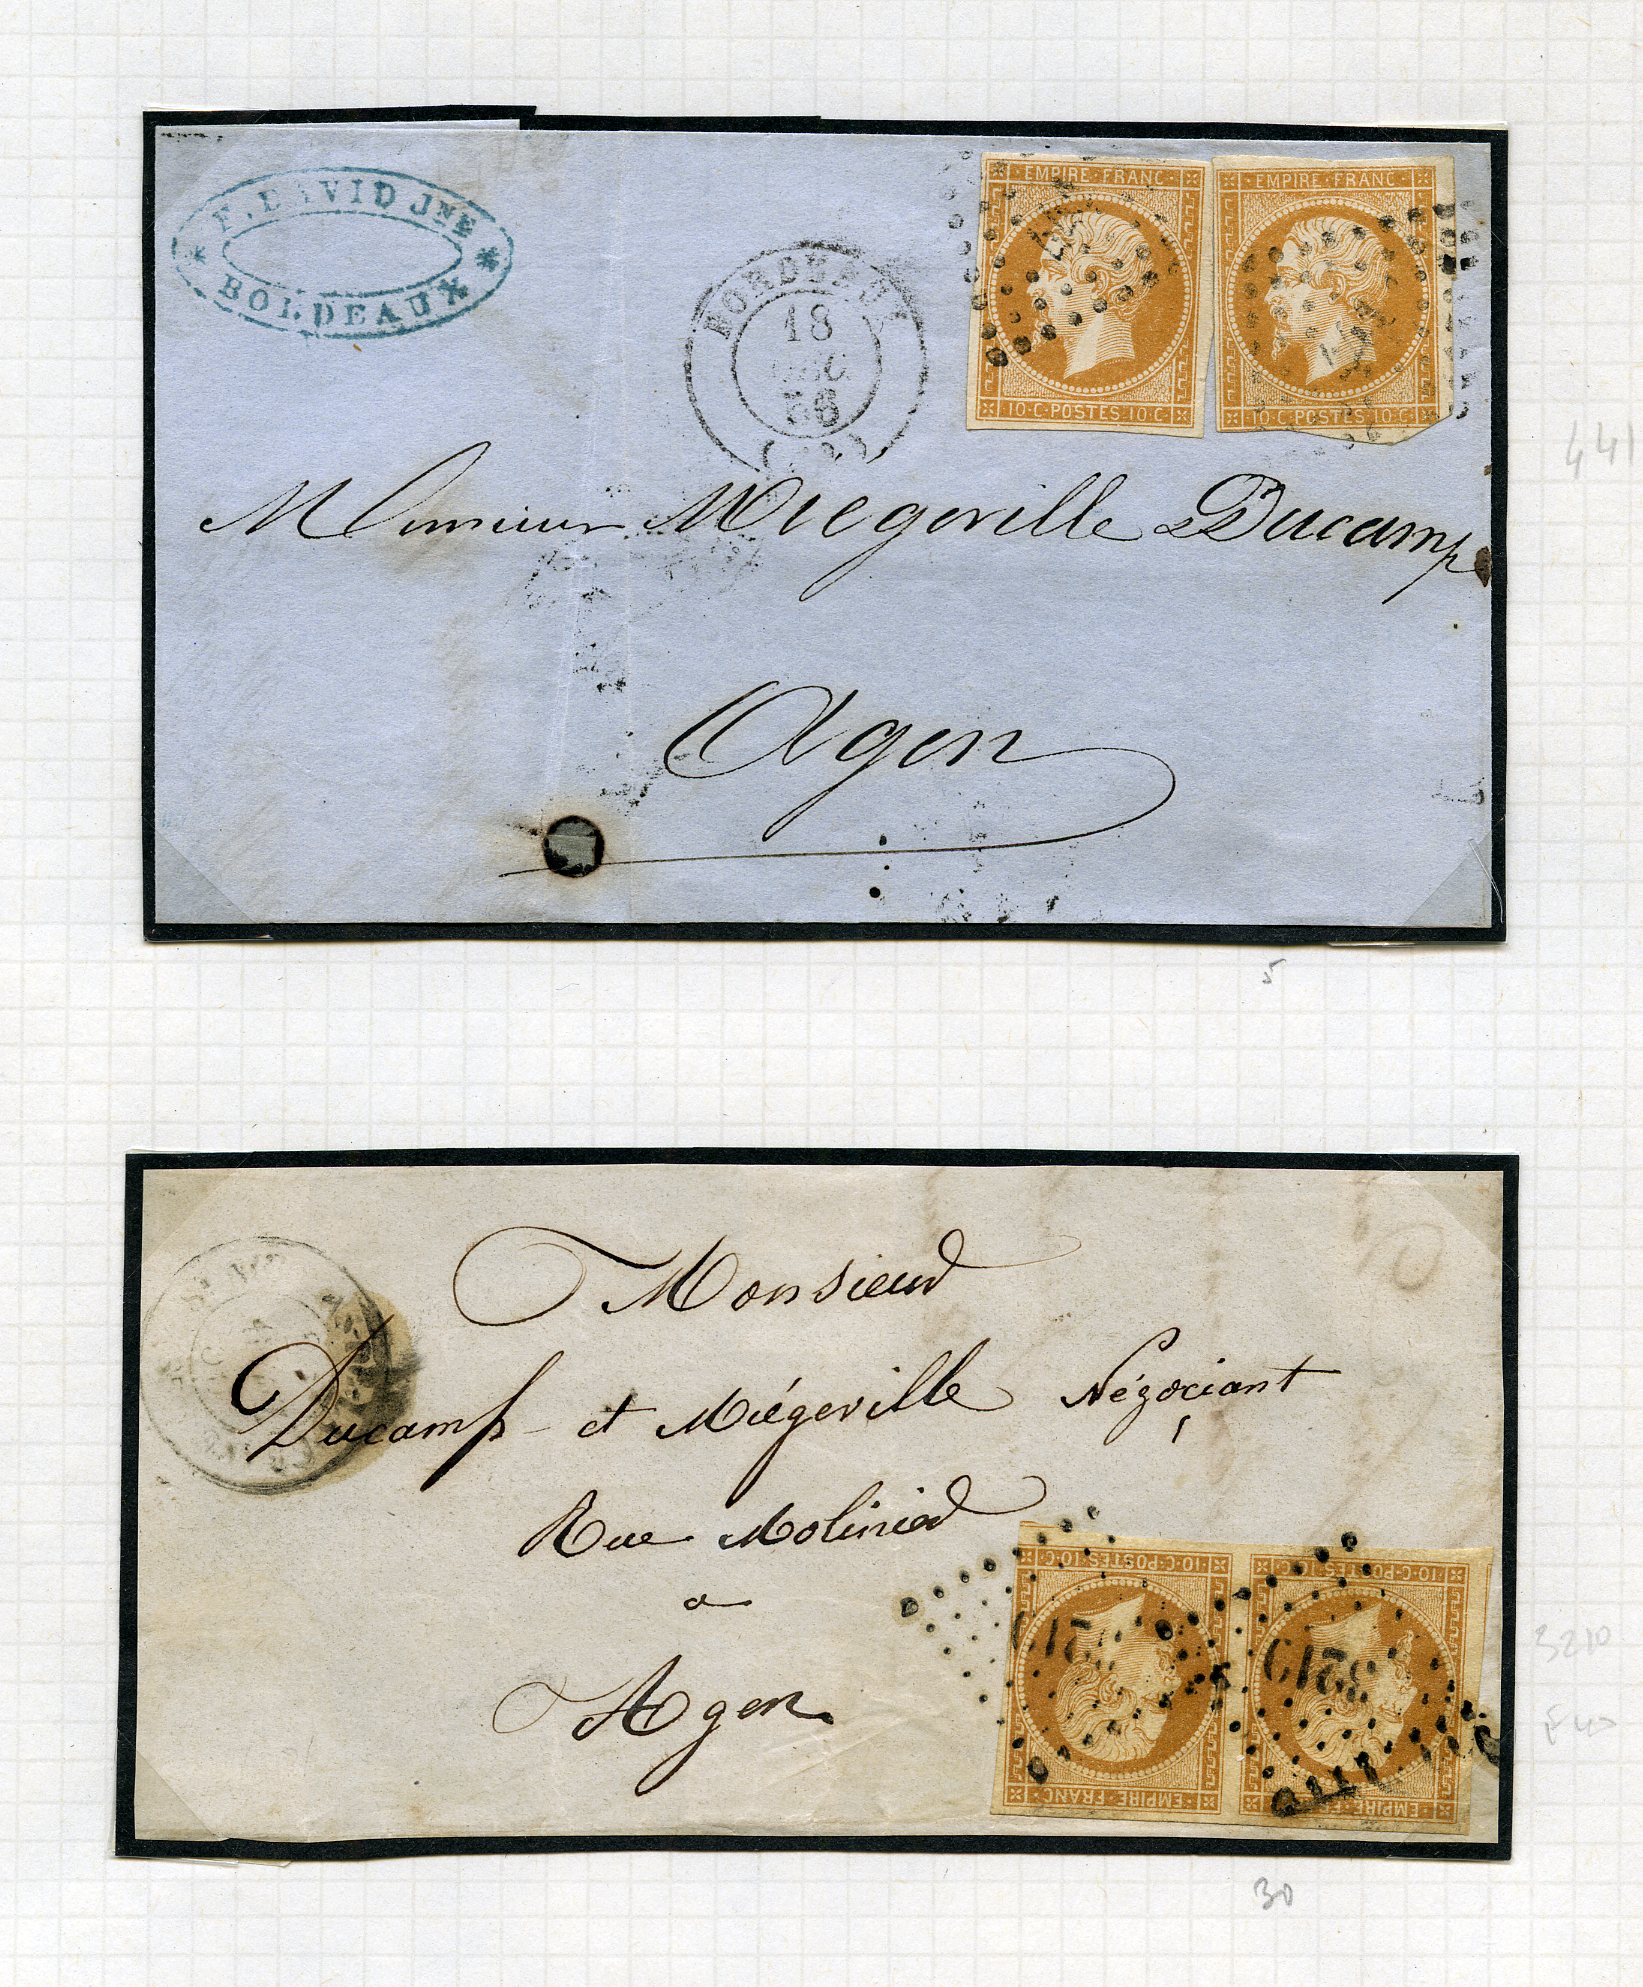 F. DAVID JNE
BORDEAUX
BORDEAUX
18
DEC
56
EMPIRE FRANC
10·C·POSTES 10·C
EMPIRE·FRANC
10·C·POSTES 10·C
441
Monsieur Miegeville Ducamp
Agen
5
Monsieur
Ducamp et Miégeville Négociant
Rue Molinier
a
Agen
10·C·POSTES·10·C
EMPIRE·FRANC
10·C·POSTES·10·C
EMPIRE F
3210
3210
3210
30